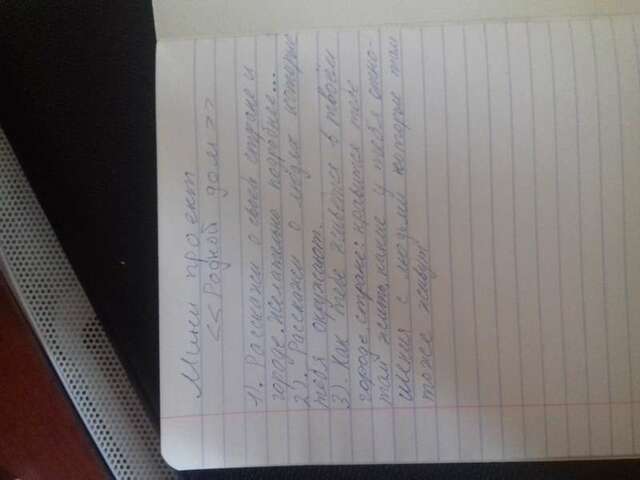 Мини проект
<<Родной дом>>
1). Расскажи о своей стране и
городе. Желательно подробнее...
2). Расскажи о людях которые
тебя окружают.
3). Как тебе живется в твоём
городе, стране: нравится тебе
там жить, какие у тебя отно-
шения с людьми которые там
тоже живут